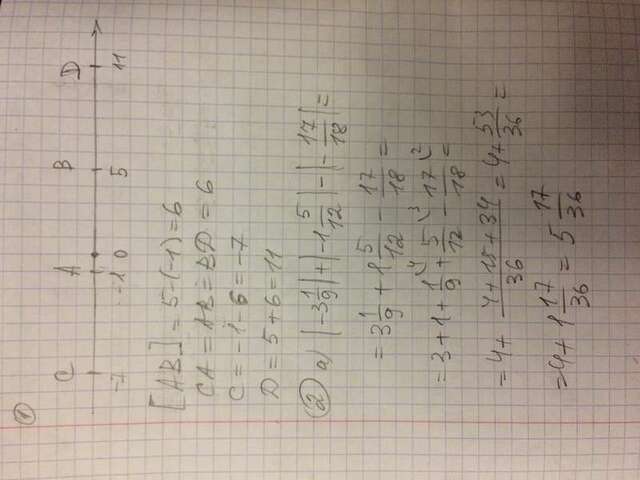 1
C A B D
-7 -1 0 5 11
[AB] = 5-(-1) = 6
CA = AB = BD = 6
C = -1-6 = -7
D = 5+6 = 11
2 а) |-3 1/9| + |-1 5/12| - |-17/18| =
= 3 1/9 + 1 5/12 - 17/18 =
= 3+1+ 1/9 (4 + 5/12 (3 - 17/18 (2 =
= 4+ (4+15+34)/36 = 4+ 53/36 =
= 4+1 17/36 = 5 17/36